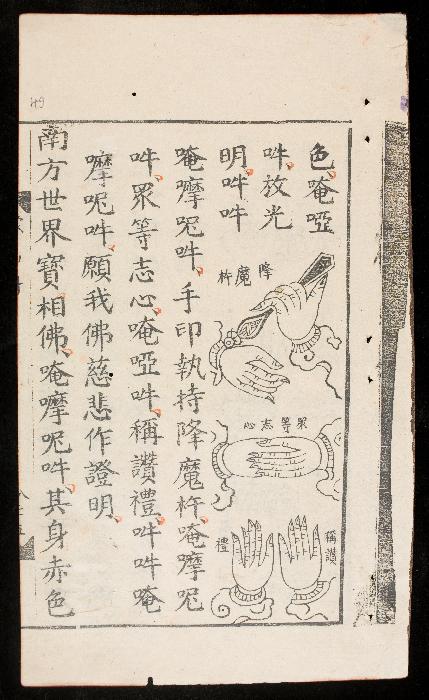 色唵啞
吽放光
明吽吽
降魔杵
眾等志心
稱讚
禮
唵摩呢吽手印執持降魔杵唵摩呢
吽眾等志心唵啞吽稱讚禮吽吽唵
摩呢吽願我佛慈悲作證明
南方世界寶相佛唵摩呢吽其身赤色
49